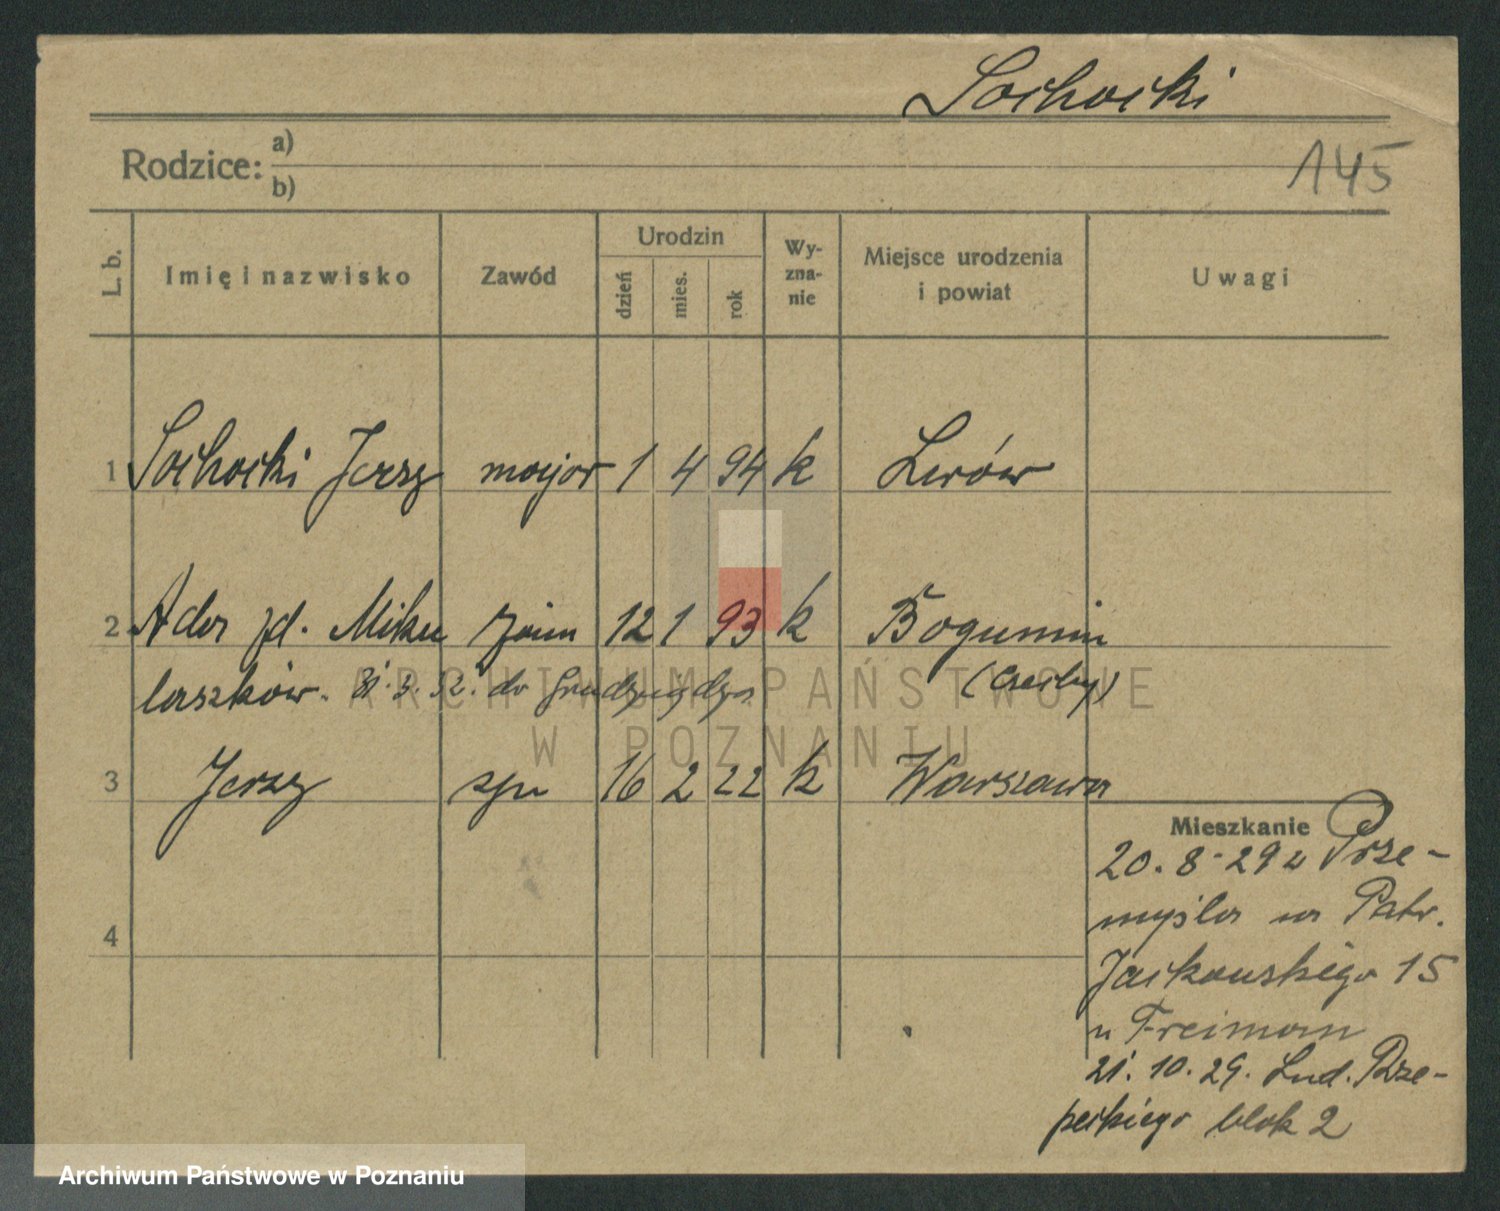 Sochocki
145
Rodzice: a)
b)
L. b. Imię i nazwisko Zawód Urodzin dzień mies. rok Wy-zna-nie Miejsce urodzenia i powiat Uwagi
1 Sochocki Jerzy major 1 4 94 k Lwów
2 Ada zd. Miku żona 12 1 93 k Bogumin
laszków. 31. 3. 32. do Grudziądza (Czechy)
3 Jerzy syn 16 2 22 k Warszawa
4
Mieszkanie
20. 8. 29 z Prze-
myśla na Patr.
Jackowskiego 15
u Freiman
21. 10. 29. Lud. Rze-
peckiego blok 2
ARCHIWUM PAŃSTWOWE
W POZNANIU
Archiwum Państwowe w Poznaniu